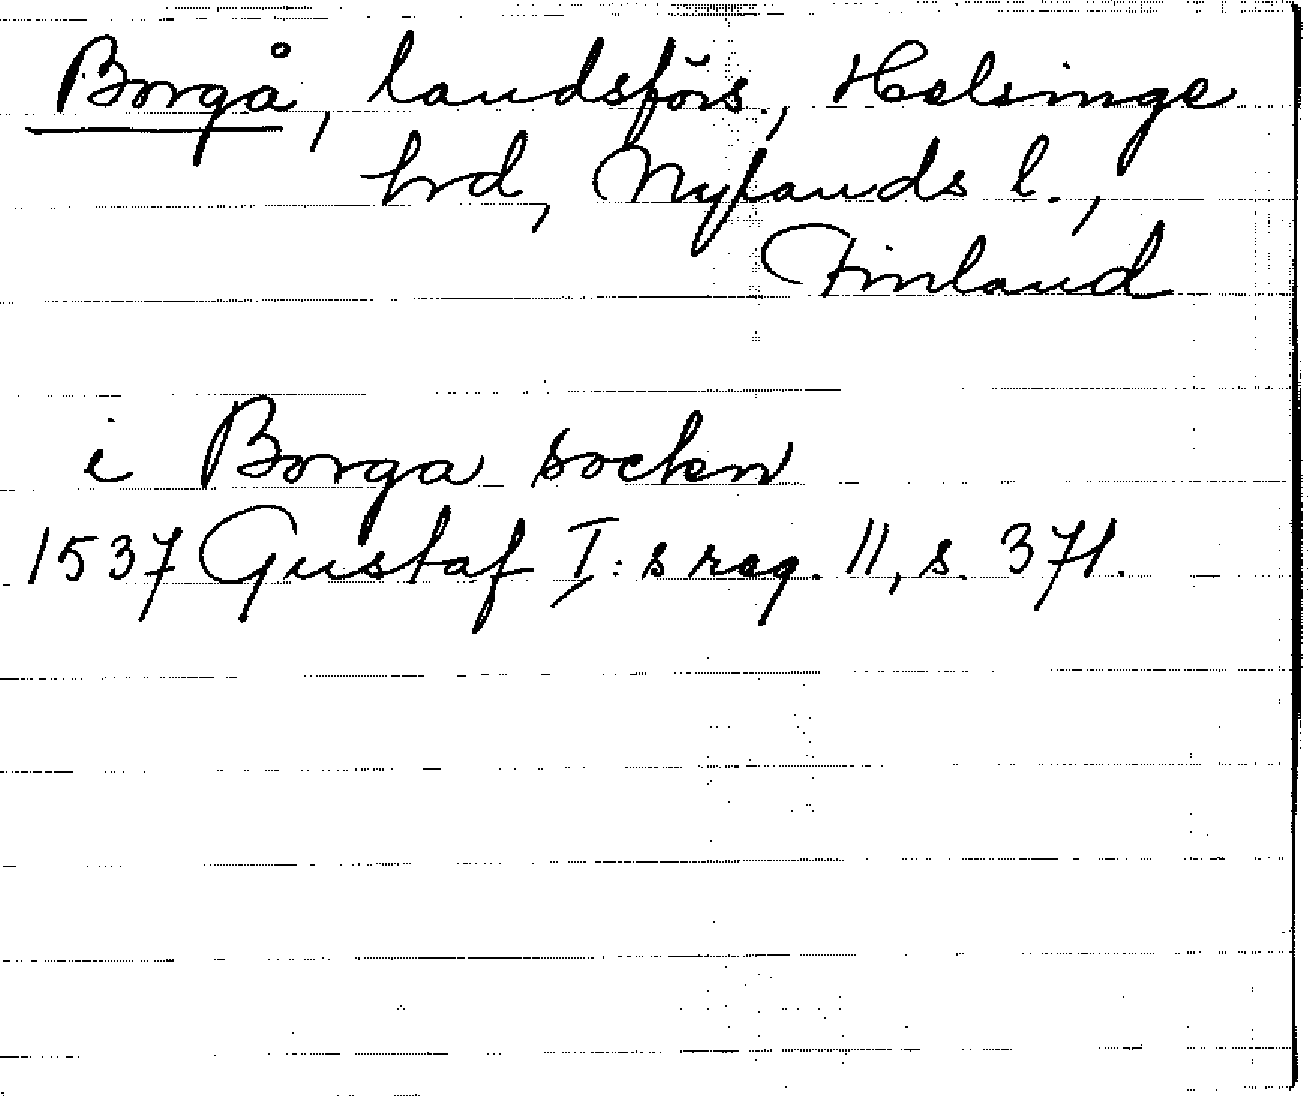 Borgå, landsförs., Helsinge
hrd, Nylands l.,
Finland
i Borga socken
1537 Gustaf I:s reg. 11, s. 371.